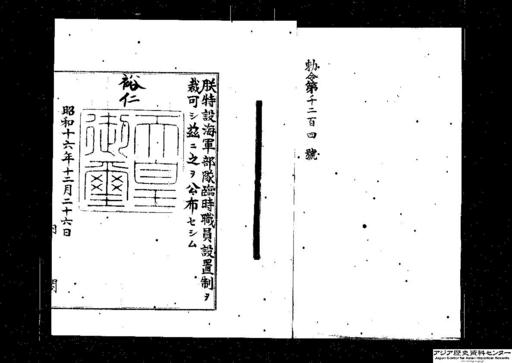 勅令第千二百四號
朕特設海軍部隊臨時職員設置制ヲ
裁可シ茲ニ之ヲ公布セシム
裕仁
天皇御璽
昭和十六年十二月二十六日
内閣
アジア歴史資料センター
Japan Center for Asian Historical Records